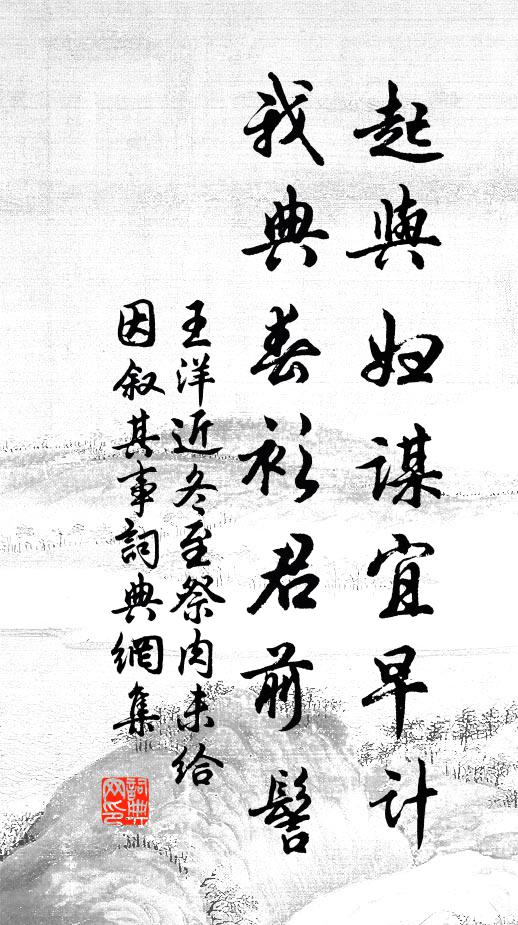 起與婦謀宜早計
我典春衫君前髻
王洋近冬至祭肉未給
因叙其事詞典網集
詞典网印